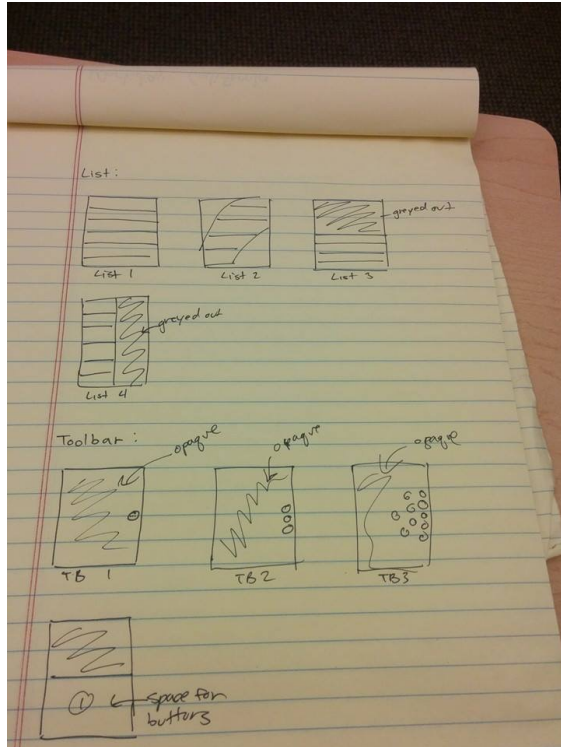 List:
greyed out
List 1
List 2
List 3
greyed out
List 4
Toolbar:
opaque
opaque
opaque
TB 1
TB2
TB3
1
space for
buttons